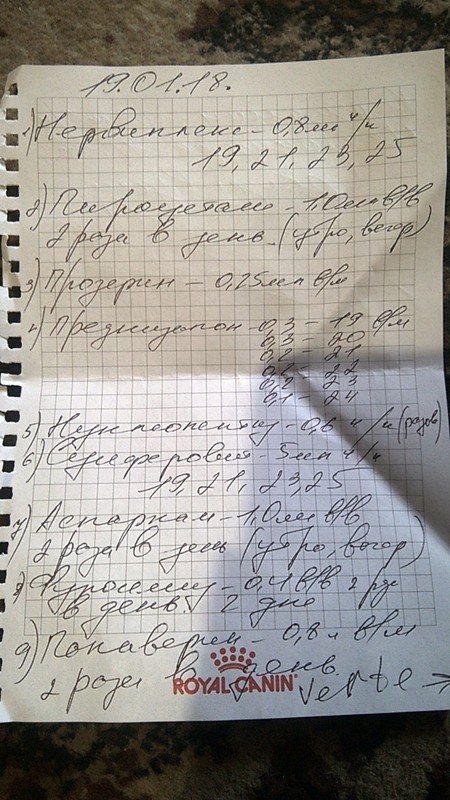 19.01.18.
1) Нервиплекс - 0,8 мл п/к
19, 21, 23, 25
2) Пироцетам - 1,0 мл в/в
2 раза в день (утро, вечер)
3) Прозерин - 0,25 мл в/м
4) Преднизолон - 0,3 - 19 в/м
0,3 - 20
0,2 - 21
0,2 - 22
0,2 - 23
0,1 - 24
5) Нуклеопептид - 0,6 п/к
6) - 5 мл п/к
19, 21, 23, 25
7) Аспаркам - 1,0 мл в/в
2 раза в день (утро, вечер)
8) Фуросемид - 0,4 в/в 2 раза
в день 2 дня
9) Папаверин - 0,8 в/м
2 раза в день
ROYAL CANIN
Verte →